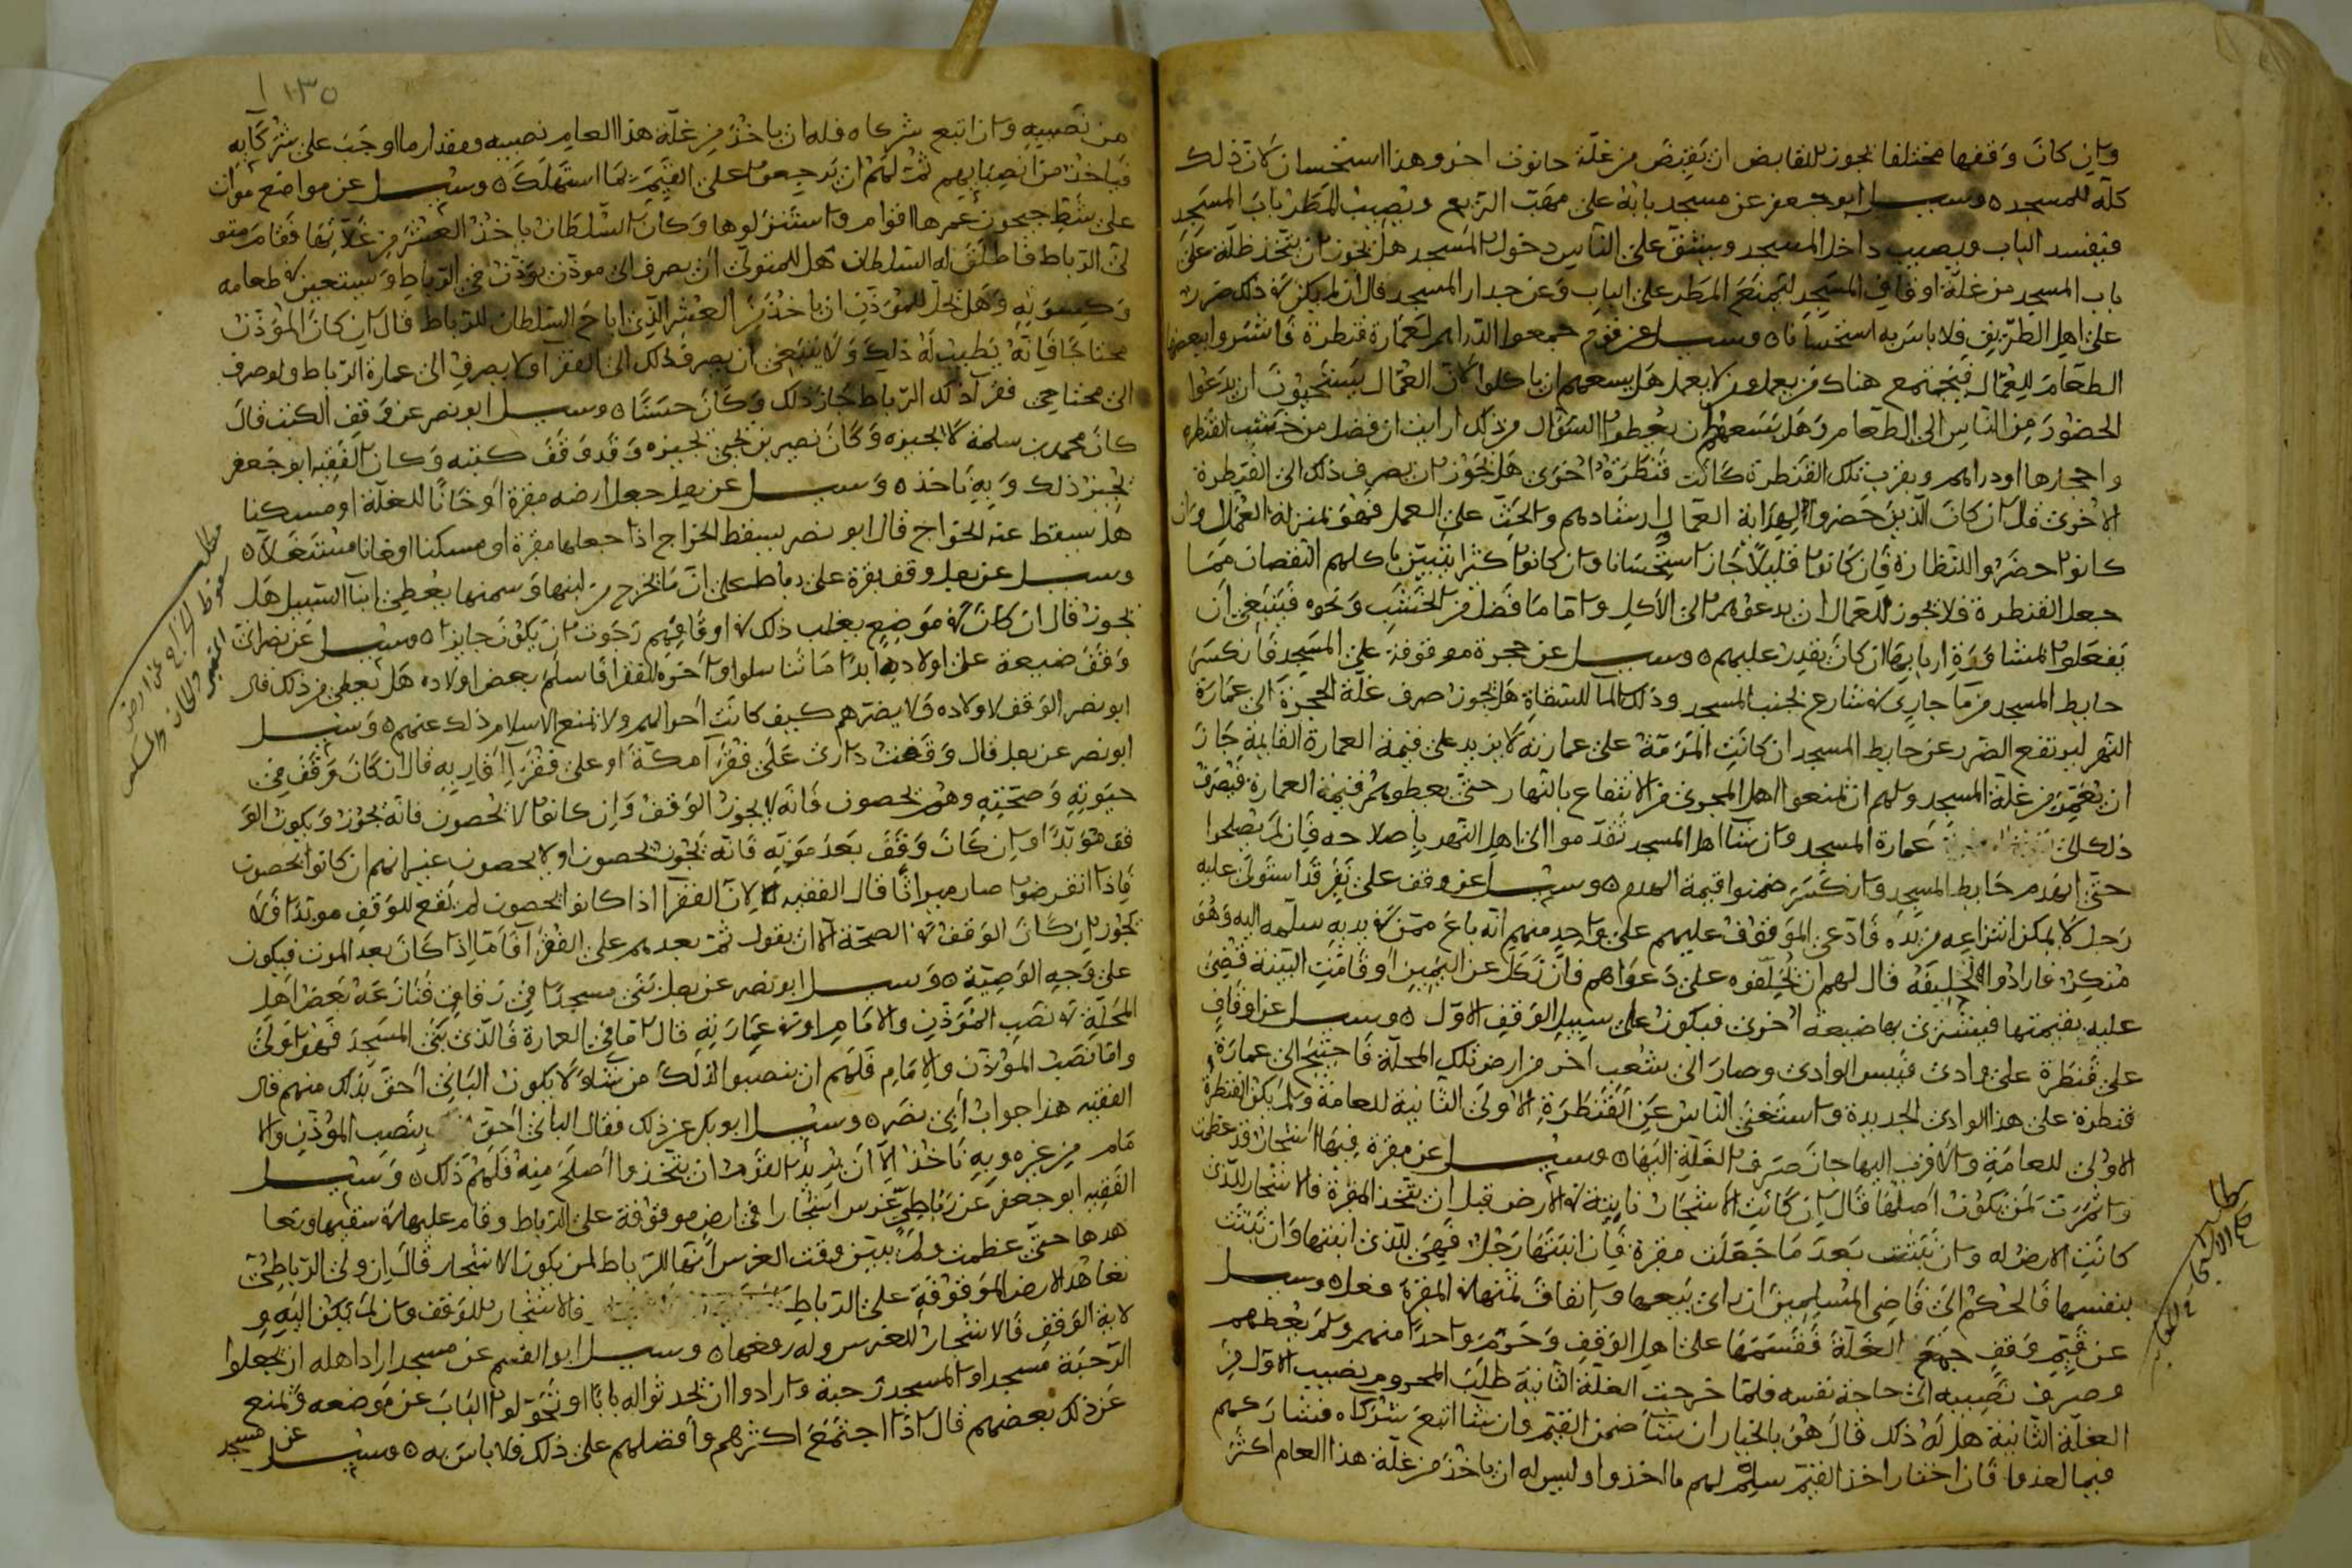 وان كان وقفها مختلفا يجوز للقابض ان يقبض من غلة حانوت اخر وهذا استحسان لان ذلك
كله للمسجد ٥ وسيل ابو جعفر عن مسجد بابه على مهب الريح ويصيب المطر باب المسجد
فيفسد الباب ويصيب داخل المسجد ويشق على الناس دخول المسجد هل يجوز ان يتخذ ظلة على
باب المسجد من غلة اوقاف المسجد ليمنع المطر على الباب وعن جدار المسجد قال ان لم يكن في ذلك ضرر
على اهل الطريق فلا باس به استحسانا ٥ وسيل عن قوم جمعوا الدراهم لعمارة قنطرة فاشتروا ببعضها
الطعام للعمال فيجتمع هناك من يعمل ومن لا يعمل هل يسعهم ان ياكلوا لان العمال يستحيون ان يدعوا
الحضور من الناس الى الطعام وهل يسعهم ان يعطوا السؤال من ذلك ارايت ان فضل من خشب القنطرة
واحجارها او دراهم وبقرب تلك القنطرة كانت قنطرة اخرى هل يجوز ان يصرف ذلك الى القنطرة
الاخرى قال ان كان الذين حضروا لهداية العمال وارشادهم والحث على العمل فهو بمنزلة العمال وان
كانوا حضروا للنظارة فان كانوا قليلا جاز استحسانا وان كانوا كثرا يتبين باكلهم النقصان مما
جعل القنطرة فلا يجوز للعمال ان يدعوهم الى الاكل واما ما فضل من الخشب ونحوه فينبغي ان
يفعلوا لمشاورة اربابها ان كان يقدر عليهم ٥ وسيل عن حجرة موقوفة على المسجد فانكسر
حايط المسجد من ما جاري في شارع بجنب المسجد وذلك الما للسقاة هل يجوز صرف غلة الحجرة الى عمارة
النهر ليرتفع الضرر عن حايط المسجد ان كانت المرمة على عمارته لا يزيد على قيمة العمارة القايمة جاز
ان من غلة المسجد ولهم ان يمنعوا اهل المجرى من الانتفاع بالنهار حتى يعطوهم قيمة العمارة فيصرف
ذلك الى عمارة المسجد وان شا اهل المسجد تقدموا الى اهل النهر باصلاحه فان لم يصلحوا
حتى انهدم حايط المسجد وانكسر ضمنوا قيمة الهدم ٥ وسيل عن وقف على نفر قد استولى عليه
رجل لا يمكن انتزاعه من يده فادعى الموقوف عليهم على واحد منهم انه باع ممن في يديه سلمه اليه وهو
منكر فارادوا تحليفه قال لهم ان يحلفوه على دعواهم فان نكل عن اليمين او قامت البينة قضى
عليه بقيمتها فيشترى بها ضيعة اخرى فيكون على سبيل الوقف الاول ٥ وسيل عن اوقاف
على قنطرة على وادى فيبس الوادى وصار الى شعب اخر من ارض تلك المحلة فاحتيج الى عمارة
قنطرة على هذا الوادى الجديدة واستغنى الناس عن القنطرة الاولى الثانية للعامة ولم يكن القنطرة
الاولى للعامة والاقرب اليها جاز صرف الغلة اليها ٥ وسيل عن مقبرة فيها اشجار قد عظمت
واثمرت لمن يكون اصلها قال ان كانت الاشجار نابتة في الارض قبل ان يتخذ المقبرة فالاشجار للذى
كانت الارض له وان نبتت بعد ما جعلت مقبرة فان انبتها رجل فهي للذى انبتها وان نبتت
بنفسها فالحكم الى قاضى المسلمين ان راى بيعها وانفاق ثمنها في المقبرة فعل ٥ وسيل
عن قيم وقف جمع الغلة فقسمها على اهل الوقف وحرم واحدا منهم ولم يعطهم
وصرف نصيبه الى حاجة نفسه فلما خرجت الغلة الثانية طلب المحروم نصيب الاول من
الغلة الثانية هل له ذلك قال هو بالخيار ان شا ضمن القيم وان شا اتبع شركاه فشاركهم
فيما اخذوا فان اختار اخذ القيم سلم لهم ما اخذوا وليس له ان ياخذ من غلة هذا العام اكثر
مطلب
١٣٥
من نصيبه وان اتبع شركاه فله ان ياخذ من غلة هذا العام نصيبه ومقدار ما وجب على شركايه
فياخذ من انصبايهم ثم لهم ان يرجعوا على القيم بما استهلك ٥ وسيل عن مواضع موات
على شط جيحون عمرها اقوام واستنزلوها وكان السلطان ياخذ العشر من غلاتها فقام متو
لى الرباط فاطلق له السلطان هل للمتولى ان يصرف الى موذن يوذن في الرباط ويستعين في طعامه
وكسوته وهل يحل للمؤذن ان ياخذ من العشر الذى اباح السلطان للرباط قال ان كان المؤذن
محتاجا فانه يطيب له ذلك ولا ينبغي ان يصرف ذلك الى الفقرا ولا يصرف الى عمارة الرباط ولو صرف
الى محتاجي فقرا ذلك الرباط جاز ذلك وكان حسنا ٥ وسيل ابو نصر عن وقف الكتب قال
كان محمد بن سلمة لا يجيزه وكان نصير بن يحيى يجيزه وقد وقف كتبه وكان الفقيه ابو جعفر
يجيز ذلك وبه ناخذ ٥ وسيل عن رجل جعل ارضه مقبرة او خانا للغلة او مسكنا
هل يسقط عنه الخراج قال ابو نصر يسقط الخراج اذا جعلها مقبرة او مسكنا او خانا مستغلا ٥
وسيل عن رجل وقف بقرة على رباط على ان ما يخرج من لبنها وسمنها يعطى ابنا السبيل هل
يجوز قال ان كان في موضع يغلب ذلك في اوقافهم رجوت ان يكون جايزا ٥ وسيل عن نصرانى
وقف ضيعة على اولاده ابدا ما تناسلوا واخره للفقرا فاسلم بعض اولاده هل يعطى من ذلك قال
ابو نصر الوقف لاولاده ولا يضرهم كيف كانت احوالهم ولا يمنع الاسلام ذلك عنهم ٥ وسيل
ابو نصر عن رجل قال وقفت دارى على فقرا مكة او على فقرا اقاربه قال ان كان وقف في
حيوته وصحته وهم يحصون فانه لا يجوز الوقف وان كانوا لا يحصون فانه يجوز ويكون الو
قف مؤبدا وان كان وقف بعد موته فانه يجوز يحصون او لا يحصون غير انهم ان كانوا يحصون
فاذا انقرضوا صار ميراثا قال الفقيه لان الفقرا اذا كانوا يحصون لم يقع للوقف موبدا فلا
يجوز ان كان الوقف في الصحة الا ان يقول ثم بعدهم على الفقرا فاما اذا كان بعد الموت فيكون
على وجه الوصية ٥ وسيل ابو نصر عن رجل بنى مسجدا في زقاق فنازعه بعض اهل
المحلة في نصب المؤذن والامام او في عمارته قال اما في العمارة فالذى بنى المسجد فهو اولى
واما نصب المؤذن والامام فلهم ان ينصبوا لذلك من شاؤ لا يكون البانى احق بذلك منهم قال
الفقيه هذا جواب ابى نصر ٥ وسيل ابو بكر عن ذلك فقال البانى احق بنصب المؤذن والا
مام من غيره وبه ناخذ الا ان يريد القوم ان يتخذوا اصلح منه فلهم ذلك ٥ وسيل
الفقيه ابو جعفر عن رباطي غرس اشجارا في ارض موقوفة على الرباط وقام عليها في سقيها وتعا
هدها حتى عظمت ولم يبين وقت الغرس انها للرباط لمن يكون الاشجار قال ان ولى الرباطى
تعاهد الارض الموقوفة على الرباط فالاشجار للوقف وان لم يكن اليه و
لاية الوقف فالاشجار للغرس وله رفعها ٥ وسيل ابو القسم عن مسجد اراد اهله ان يجعلوا
الرحبة مسجدا والمسجد رحبة وارادوا ان يحدثوا له بابا او يحولوا الباب عن موضعه ويمنع
عن ذلك بعضهم قال اذا اجتمع اكثرهم وافضلهم على ذلك فلا باس به ٥ وسيل عن مسجد
مطلب
سقوط الخراج عن ارض